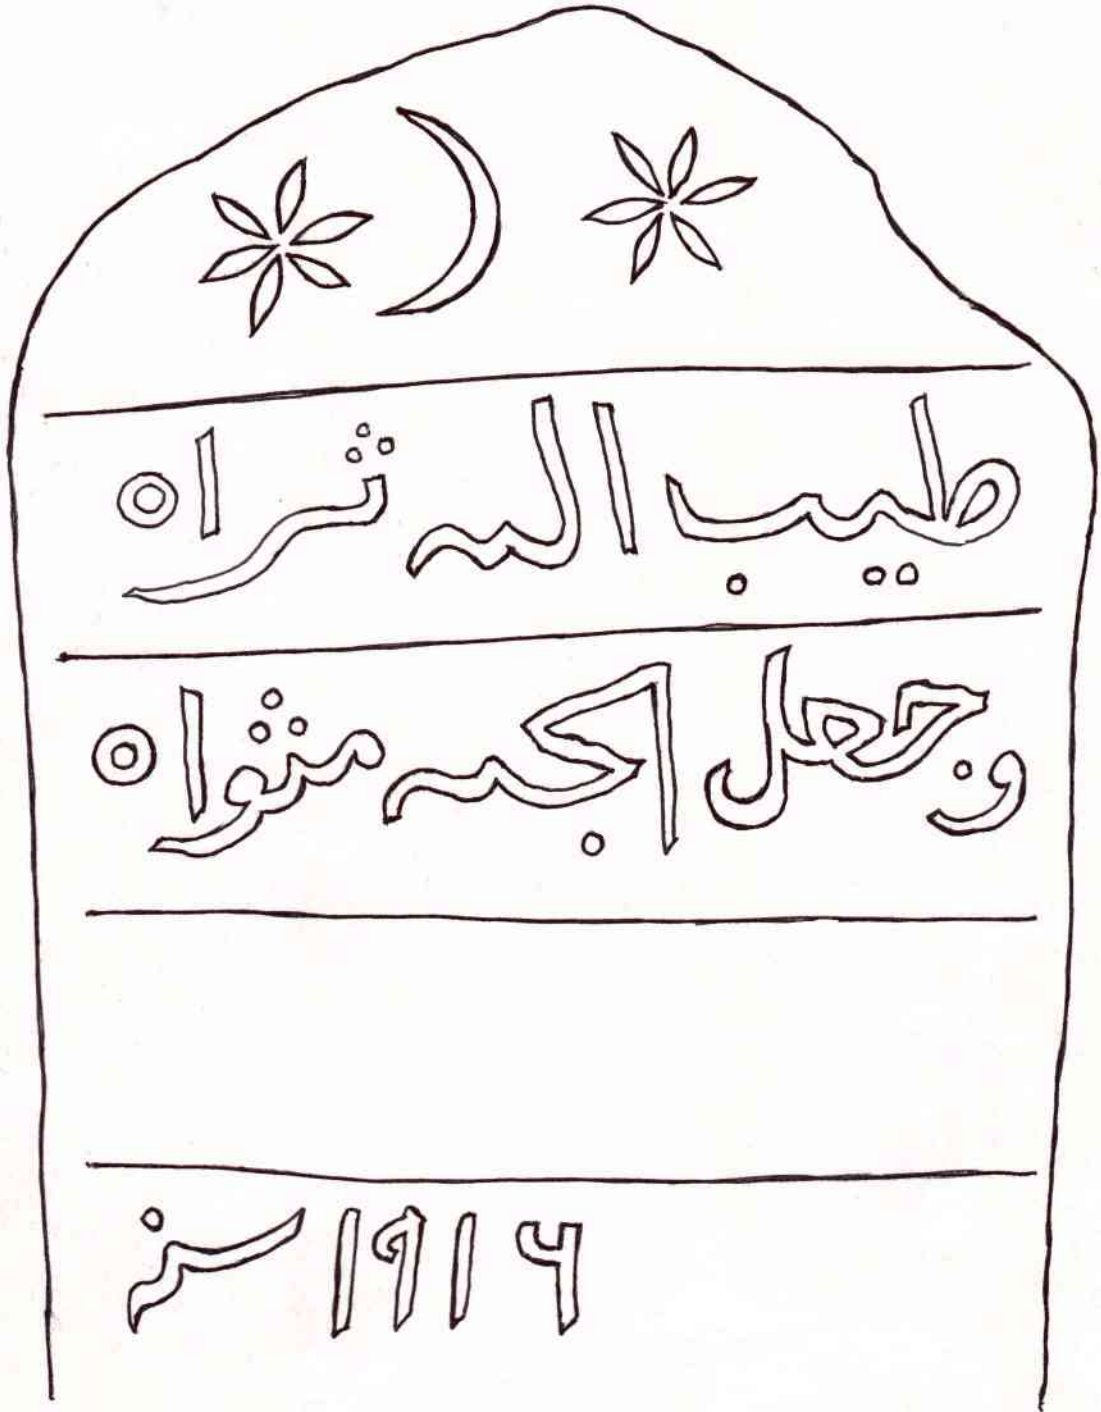 طيب الله ثراه
وجعل الجنه مثواه
١٩١۶